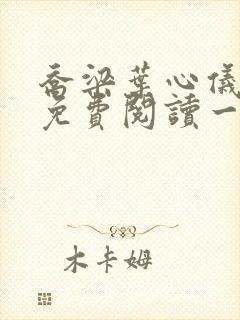 喬梁葉心儀
免費閱讀一
木卡姆